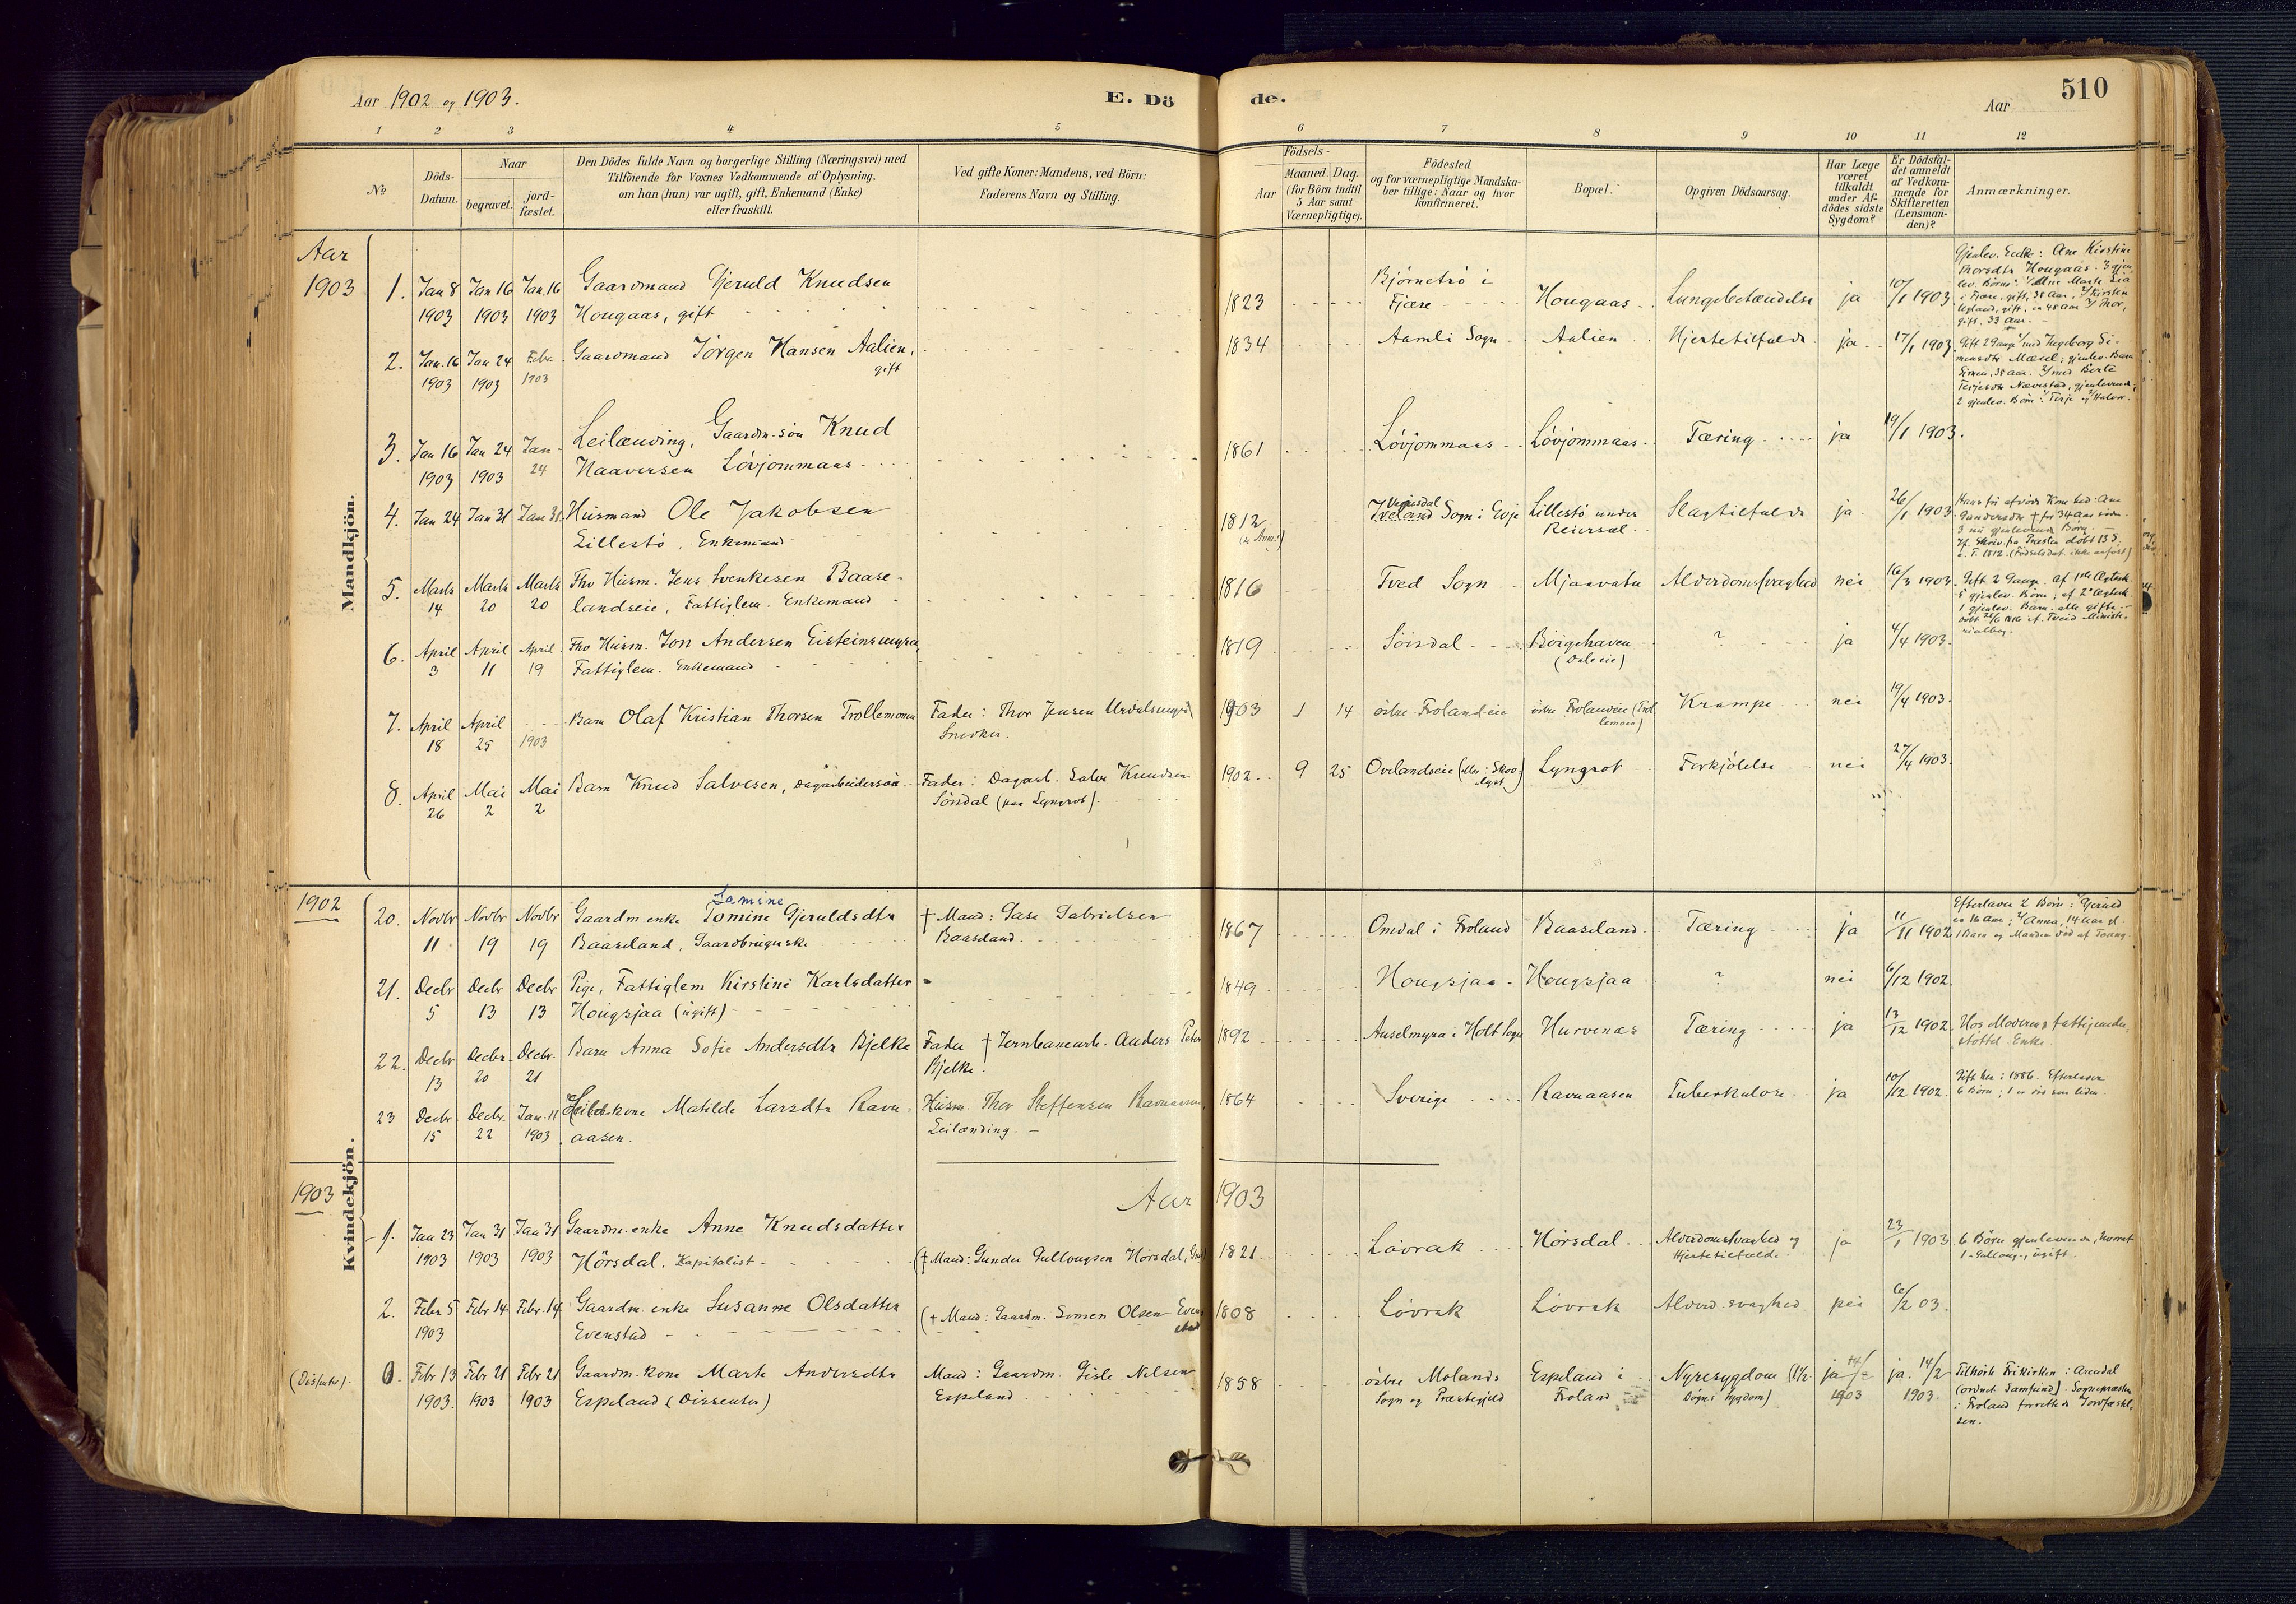 Aar 1902 og 1903.
E. Döde.
Aar
510
1 2 3 4 5 6 7 8 9 10 11 12
No
Döds-Datum.
Naar
begravet.
jord-fæstet.
Den Dödes fulde Navn og borgerlige Stilling (Næringsvei) med
Tilföiende for Voxnes Vedkommende af Oplysning,
om han (hun) var ugift, gift, Enkemand (Enke)
eller fraskilt.
Ved gifte Koner: Mandens, ved Börn:
Faderens Navn og Stilling.
Födsels-
Aar
Maaned. Dag.
(for Börn indtil
5 Aar samt
Værnepligtige).
Födested
og for værnepligtige Mandska-
ber tillige: Naar og hvor
konfirmeret.
Bopæl.
Opgiven Dödsaarsag.
Har Læge
været
tilkaldt
under Af-
dödes sidste
Sygdom?
Er Dödsfal-
det anmeldt
af Vedkom-
mende for
Skifteretten
(Lensman-
den)?
Anmærkninger.
Aar
1903
Mandkjön.
1. Jan 8 1903 Jan 16 1903 Jan. 16 1903 Gaardmand Gjeruld Knudsen
Hougaas, gift
1823 Bjørnetrø i
Fjære Hougaas Lungebetændelse ja 10/1 1903.
Gjenlev. Enke: Ane Kirstine
Thorsdtr Hougaas. 3 gjen
lev. Børn: 1/ Ane Marte Lia
i Fjære, gift, 38 Aar, 2/ Kirsten
Ugland, gift, 48 Aar 3/ Thor,
gift. 33 Aar.
2. Jan. 16 1903 Jan 24 1903 Febr. 1903 Gaardmand Jörgen Hansen Aalien,
gift
1834 Aamli Sogn Aalien Hjertetilfælde ja 17/1 1903.
Gift 2 Gange 1/ med Ingeborg Si-
monsdtr Mæsel; gjenlev. Barn
Simen, 38 Aar. 2/ med Berte
Terjesdtr Nævestad, gjenlevende,
2 gjenlev. Børn: Terje og Halvor.
3. Jan 16 1903 Jan 24 1903 Jan 24 Leilænding, Gaardm.søn Knud
Haaversen Lövjommaas
1861 Lövjommaas Lövjommaas Tæring ja 19/1 1903.
4. Jan 24 Jan 31 Jan 31 Husmand Ole Jakobsen
Lillestö, Enkemand
1812 Vegusdal
Iveland Sogn i Evje Lillestö under
Reiersøl Slagtilfælde ja 26/1 1903.
5. Marts 14 Marts 20 Marts 20 Fhv Husm. Jens Svenkesen Baase-
landseie, Fattiglem. Enkemand
1816 Tved Sogn Mjaavatn Alderdomssvaghed nei 16/3 1903.
Gift 2 Gange. af 1ste Ægtesk.
5 gjenlev. Børn; af 2det Ægtesk.
1 gjenlev. Barn. alle gifte.
6. April 3 April 11 April 19 Fhv Husm. Jon Andersen Eisteinsmyra,
Fattiglem. Enkemand
1819 Söisdal Böigehaven
(Daleeie) ? ja 4/4 1903.
7. April 18 April 25 1903 Barn Olaf Kristian Thorsen Trollemoen
Fader: Thor Jensen Urdalsmyra
Snedker.
1903 1 14 östre Frolandeie östre Frolandeie (Trol
lemoen) Krampe nei 19/4 1903.
8. April 26 Mai 2 Mai 2 Barn Knud Salvesen, Dagarbeidersøn
Fader: Dagarb. Salve Knudsen
Søndal (paa Lyngrot).
1902 9 25 Ovelandseie (eller: Skov-
lyst) Lyngrot Forkjölelse nei 27/4 1903.
1902
Kvindekjön.
20. Novbr 11 Novbr 19 Novbr 19 Gaardm.enke Tomine Gjeruldsdtr
Samine
Baaseland, Gaardbrugerske
† Mand: Tase Gabrielsen
Baaseland.
1867 Omdal i Froland Baaseland Tæring ja 11/11 1902
Efterlader 2 Børn: 1/ Gjeruld
16 Aar; 2/ Anna, 14 Aar gl.
1 Barn og Manden død af Tæring
21. Decbr 5 Decbr 13 Decbr 13 Pige, Fattiglem Kirstine Karlsdatter
Hougsjaa (ugift)
1849 Hougsjaa Hougsjaa ? nei 6/12 1902.
22. Decbr 13 Decbr. 20 Decbr. 21 Barn Anna Sofie Andersdtr Bjelke
Fader † Jernbanearb. Anders Peter
Bjelke.
1892 Auselmyra i Holt Sogn Hurvenes Tæring ja 13/12 1902.
Hos Moderen, fattigunder-
støttet Enke.
23 Decbr. 15 Decbr. 22 Jan. 11 1903 kone Matilde Larsdtr Ravn-
aasen.
Husm. Thor Steffensen Ravnaasen,
Leilænding.
1864 Sverige Ravnaasen Tuberkulose ja 10/12 1902.
Gift her: 1886. Efterlader
6 Børn;
1903
Aar 1903
1. Jan 23 1903 Jan 31 1903 Jan 31 1903 Gaardm.enke Anne Knudsdatter
Hörsdal, Kapitalist
(† Mand: Gunder Gullougsen Hörsdal,
1821 Lövrak Hörsdal Alderdomssvaghed og
Hjertetilfælde ja 23/1 1903
6 Børn gjenlevende, hvoraf
1 ugift.
2. Febr 5 1903 Febr 14 Febr. 14 Gaardm.enke Susanne Olsdatter
Evenstad
(† Mand: Gaardm. Simen Olsen Even-
stad
1808 Lövrak Lövrak Alderd. svaghed nei 6/2 03.
(Dissenter).
0. Febr 13 1903. Febr 21 1903 Febr 21 1903 Gaardm.kone Marte Andersdtr
Espeland (Dissenter)
Mand: Gaardm. Gisle Nilsen
Espeland
1858 östre Molands
Sogn og Præstegjeld Espeland i
Froland Nyresygdom (1 1/2
Døgns Sygdom) ja 14/2
1903 ja. 14/2
1903.
Tilhørte Frikirken i Arendal
(ordnet Samfund). Sognepræsten
i Froland forrettede Jordfæstel-
sen.